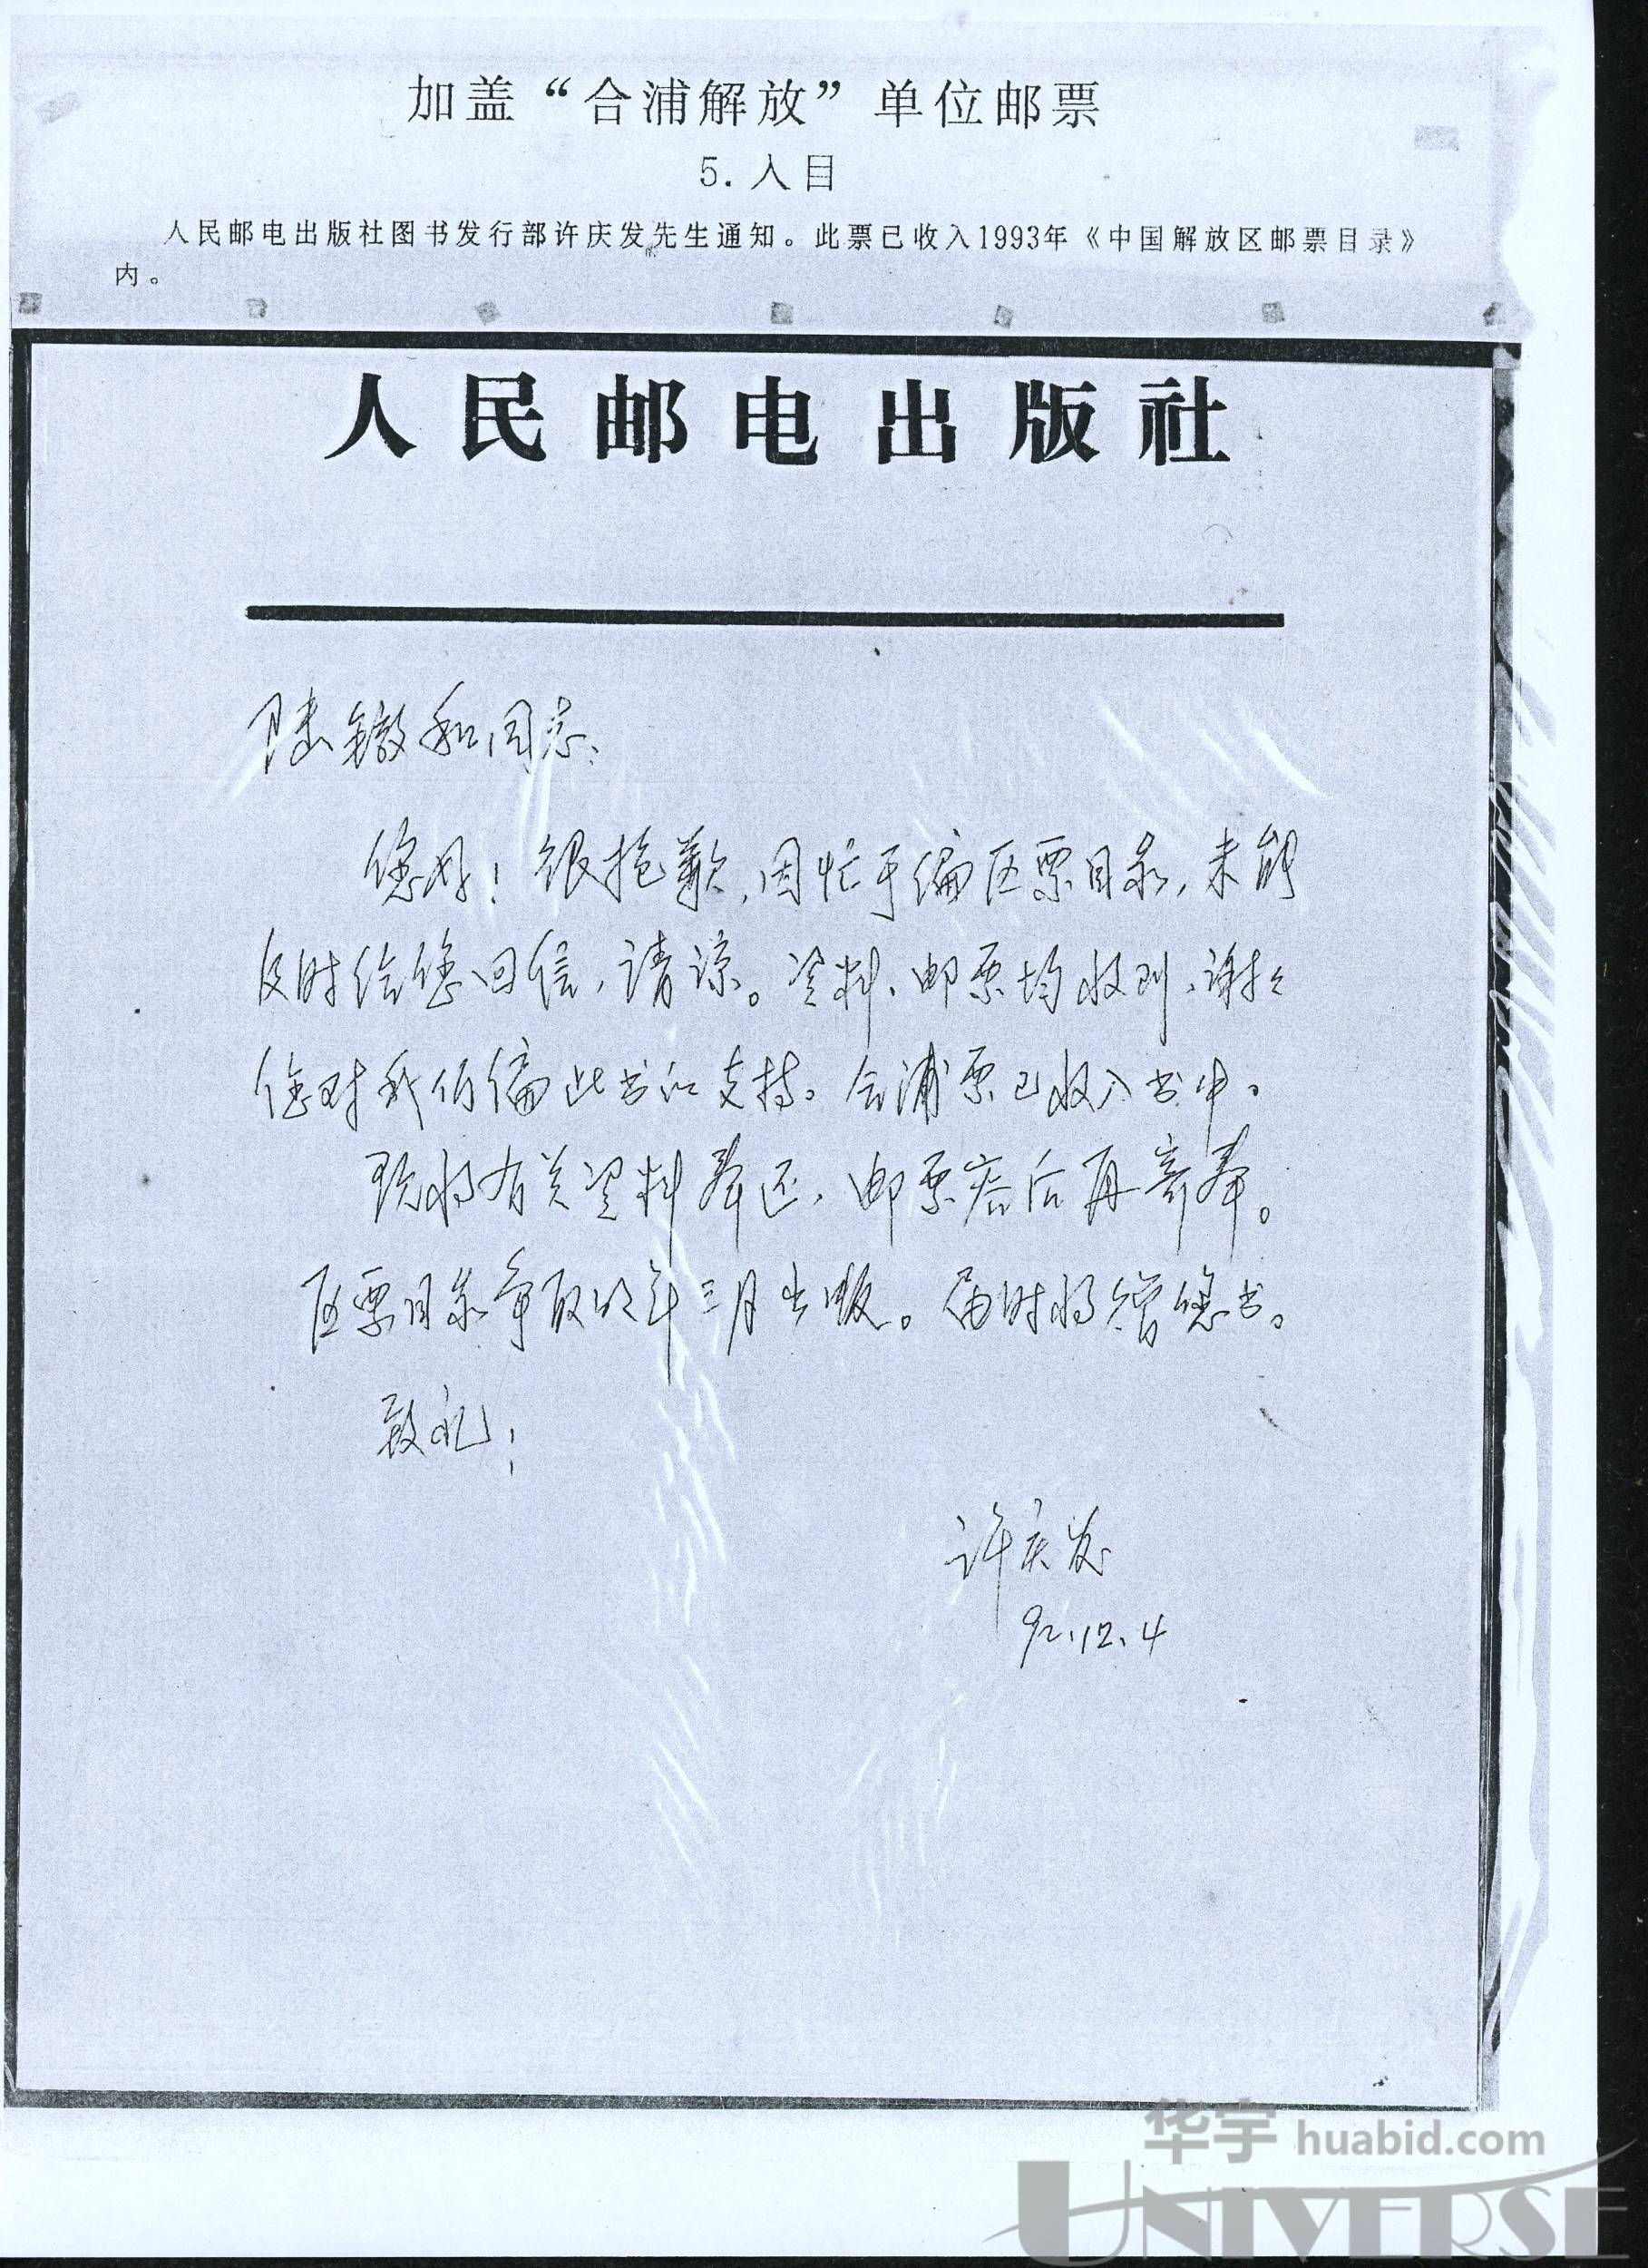 加盖“合浦解放”单位邮票
5. 入目
人民邮电出版社图书发行部许庆发先生通知。此票已收入1993年《中国解放区邮票目录》
内。
人民邮电出版社
陆 和同志:
您好！很抱歉,因忙于编区票目录,未能
及时给您回信,请谅。资料、邮票均收到,谢谢
您对我们编此书的支持。合浦票已收入书中。
现将有关资料奉还,邮票 后再寄奉。
区票目录争取明年三月出版。届时将赠您书。
致礼!
许庆发
92.12.4
华宇 huabid.com
UNIVERSE